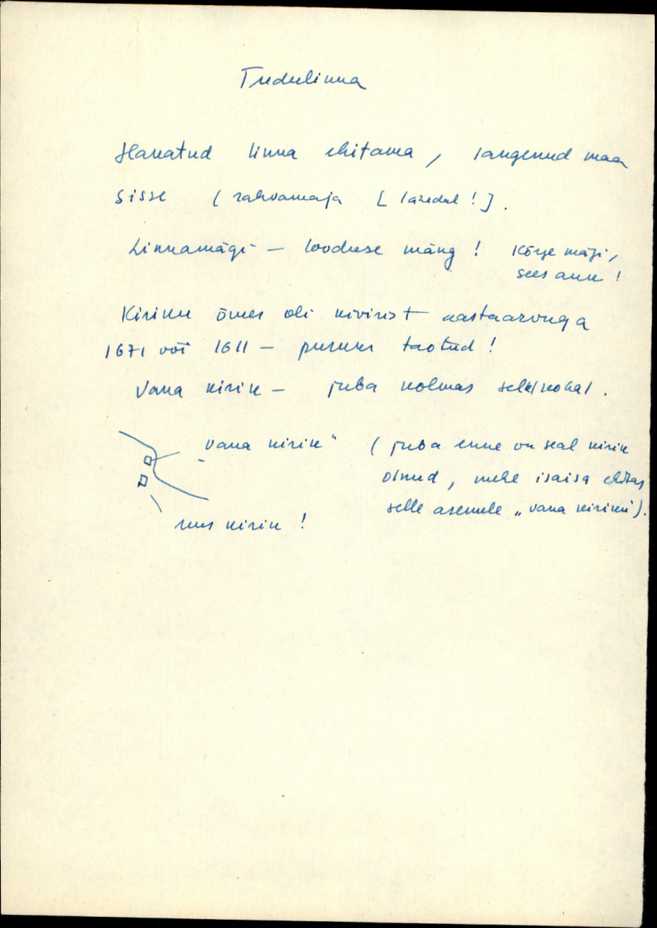 Tudulinna
Hakatud linna ehitama, langenud maa
sisse (rahvamaja [laredal!].
Linnamägi – looduse mäng! Kõrge mägi,
sees auk!
Kiriku õues oli kivirist aastaarvuga
1671 või 1611 – puruks taotud!
Vana kirik – juba kolmas sellel kohal.
„vana kirik" (juba enne on seal kirik
olnud, mehe isaisa ehitas
selle asemele „vana kiriku").
uus kirik!